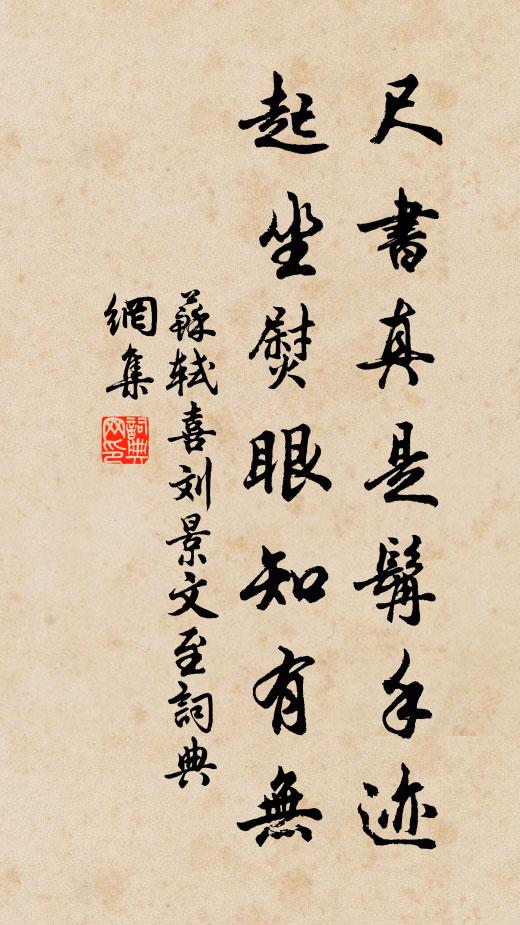 尺書真是髯手迹
起坐熨眼知有無
蘇軾喜刘景文至詞典
網集
詞典網印